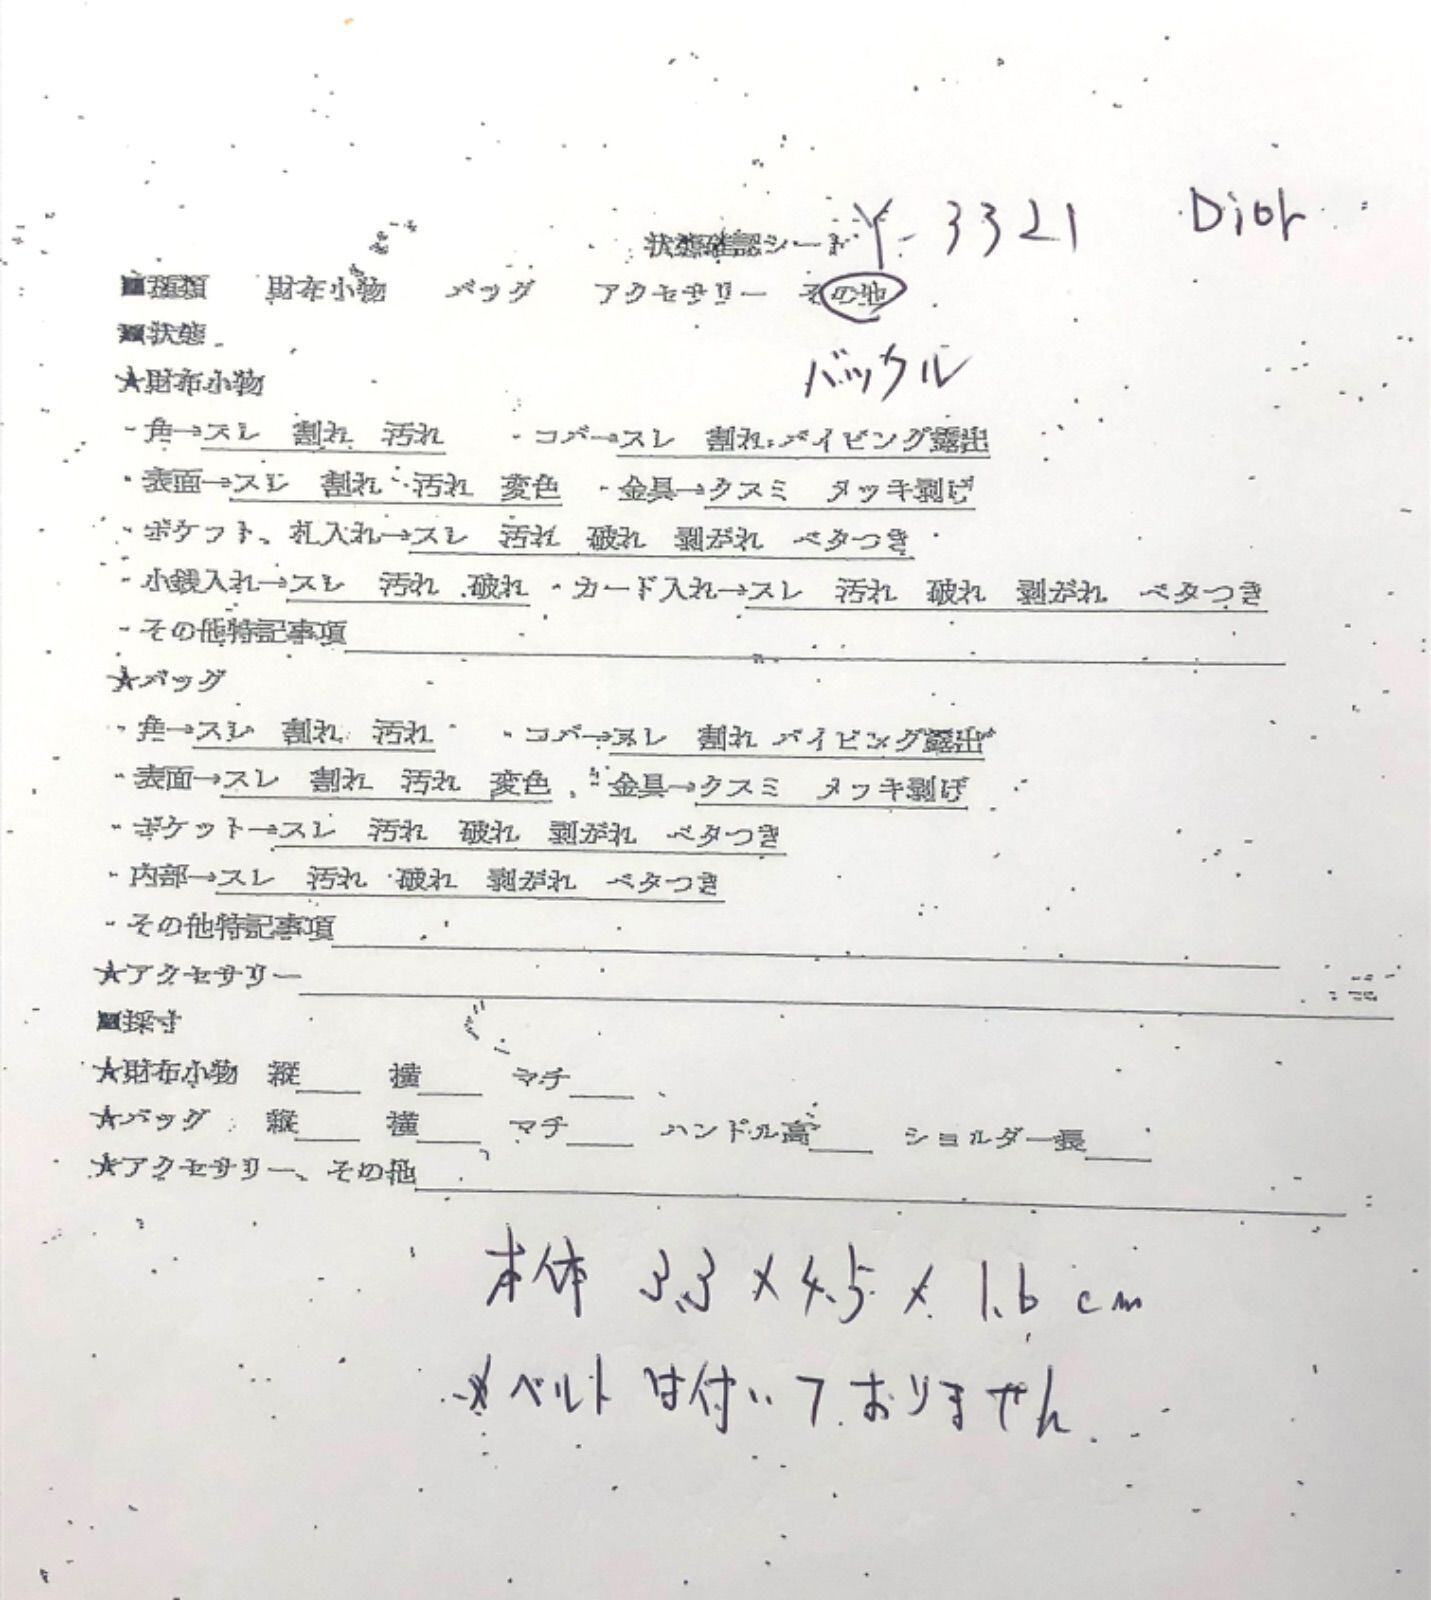 状態確認シート Y-3321 Dior
■種類 財布小物 バッグ アクセサリー その他
■状態 バックル
★財布小物
・角→スレ 割れ 汚れ ・コバ→スレ 割れ パイピング露出
・表面→スレ 割れ 汚れ 変色 ・金具→クスミ メッキ剥げ
・ポケット、札入れ→スレ 汚れ 破れ 剥がれ ベタつき
・小銭入れ→スレ 汚れ 破れ ・カード入れ→スレ 汚れ 破れ 剥がれ ベタつき
・その他特記事項
★バッグ
・角→スレ 割れ 汚れ ・コバ→スレ 割れ パイピング露出
・表面→スレ 割れ 汚れ 変色 ・金具→クスミ メッキ剥げ
・ポケット→スレ 汚れ 破れ 剥がれ ベタつき
・内部→スレ 汚れ 破れ 剥がれ ベタつき
・その他特記事項
★アクセサリー
■採寸
★財布小物 縦 横 マチ
★バッグ 縦 横 マチ ハンドル高 ショルダー長
★アクセサリー、その他
本体 3.3×4.5×1.6cm
※ベルトは付いておりません